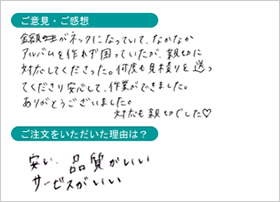 ご意見・ご感想
金額がネックになっていて、なかなか
アルバムを作れず困っていたが、親切に
対応してくださった。何度も見積りを送っ
てくださり安心して、作業ができました。
ありがとうございました。
対応も親切でした♡
ご注文をいただいた理由は？
安い 品質がいい
サービスがいい